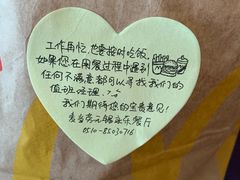 工作再忙，也要按时吃饭，
如果您在用餐过程中遇到
任何不满意都可以寻找我们的
值班经理，
我们期待您的宝贵意见！
麦当劳无锡
餐厅
0510-85030716